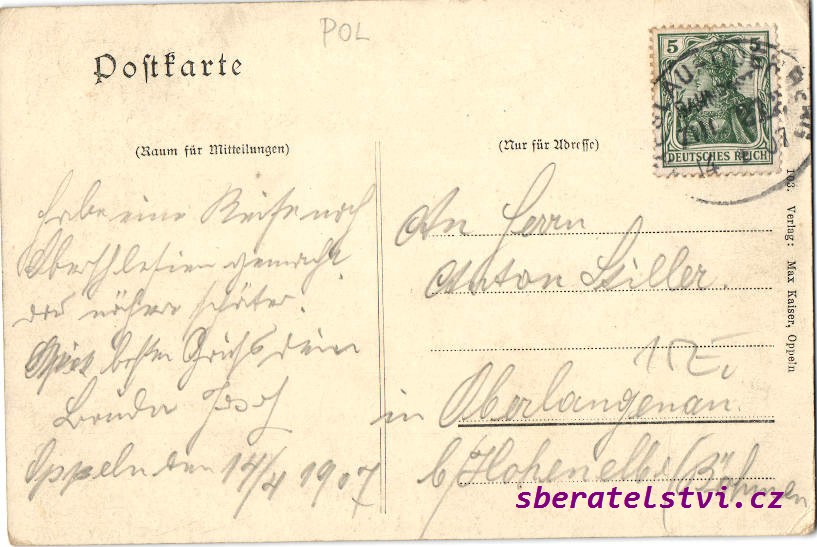 POL
Postkarte
(Raum für Mitteilungen)
(Nur für Adresse)
5 5
DEUTSCHES REICH
103. Verlag: Max Kaiser, Oppeln
habe eine Reise nach
Oberschlesien gemacht
das nähere später.
besten Gruß dein
Bruder Josef
Oppeln den 14/4 1907
An Herrn
Anton Stiller.
in Oberlangenau.
b/Hohenelbe (Böhmen
sberatelstvi.cz